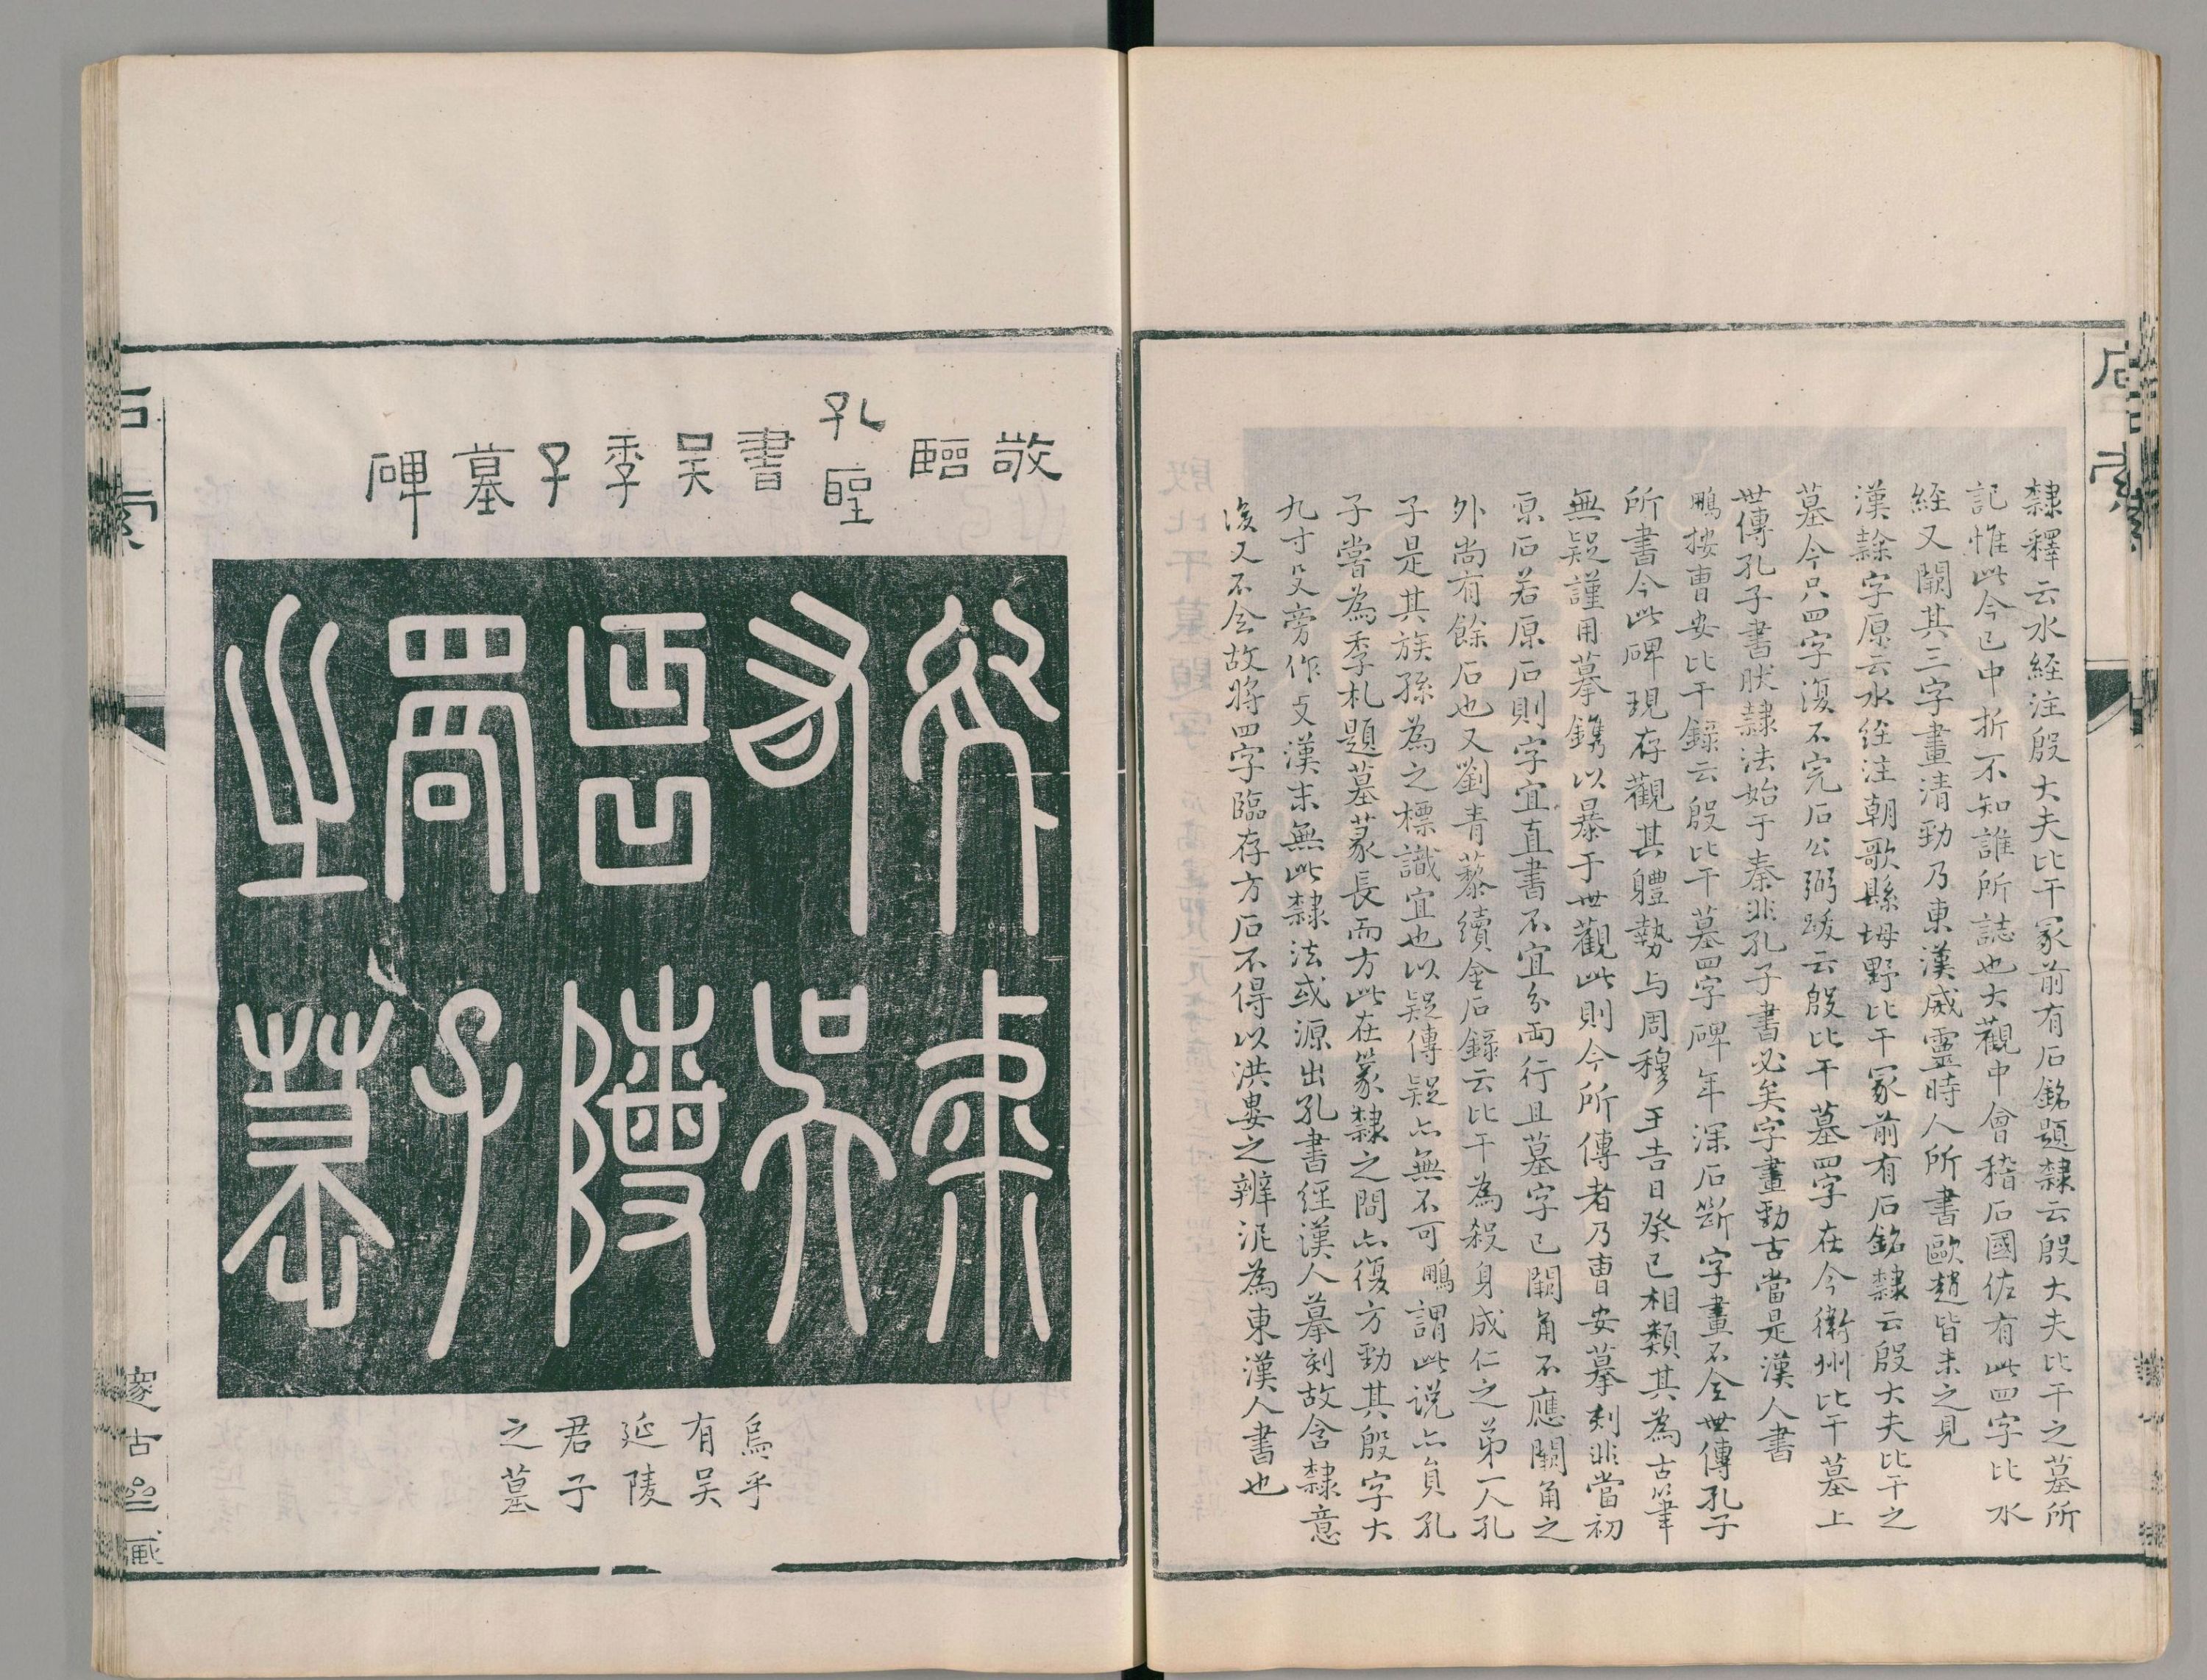 隸釋云水經注殷大夫比干冢前有石銘題隸云殷大夫比干之墓所
記惟此今已中折不知誰所誌也大觀中會稽石國佐有此四字比水
經又闕其三字畫清勁乃東漢威靈時人所書歐趙皆未之見
漢隸字原云水經注朝歌縣坶野比干冢前有石銘隸云殷大夫比干之
墓今只四字復不完石公弼跋云殷比干墓四字在今衛州比干墓上
世傳孔子書肰隸法始于秦非孔子書必矣字畫勁古當是漢人書
鵬按曹安比干錄云殷比干墓四字碑年深石斷字畫不全世傳孔子
所書今此碑現存觀其軆勢与周穆王吉日癸巳相類其為古筆
無疑謹用摹鐫以暴于世觀此則今所傳者乃曹安摹刻非當初
原石若原石則字宜直書不宜分兩行且墓字已闕角不應闕角之
外尚有餘石也又劉青藜續金石錄云比干為殺身成仁之第一人孔
子是其族孫為之標識宜也以疑傳疑亦無不可鵬謂此說亦負孔
子嘗為季札題墓篆長而方此在篆隸之間亦復方勁其殷字大
九寸殳旁作攴漢末無此隸法或源出孔書經漢人摹刻故含隸意
後又不全故將四字臨存方石不得以洪婁之辨泥為東漢人書也
石索
敬
臨
孔聖
書
吴
季
子
墓
碑
於乎
有吳
延陵
君子
之墓
烏乎
有吴
延陵
君子
之墓
石索
邃古亝藏